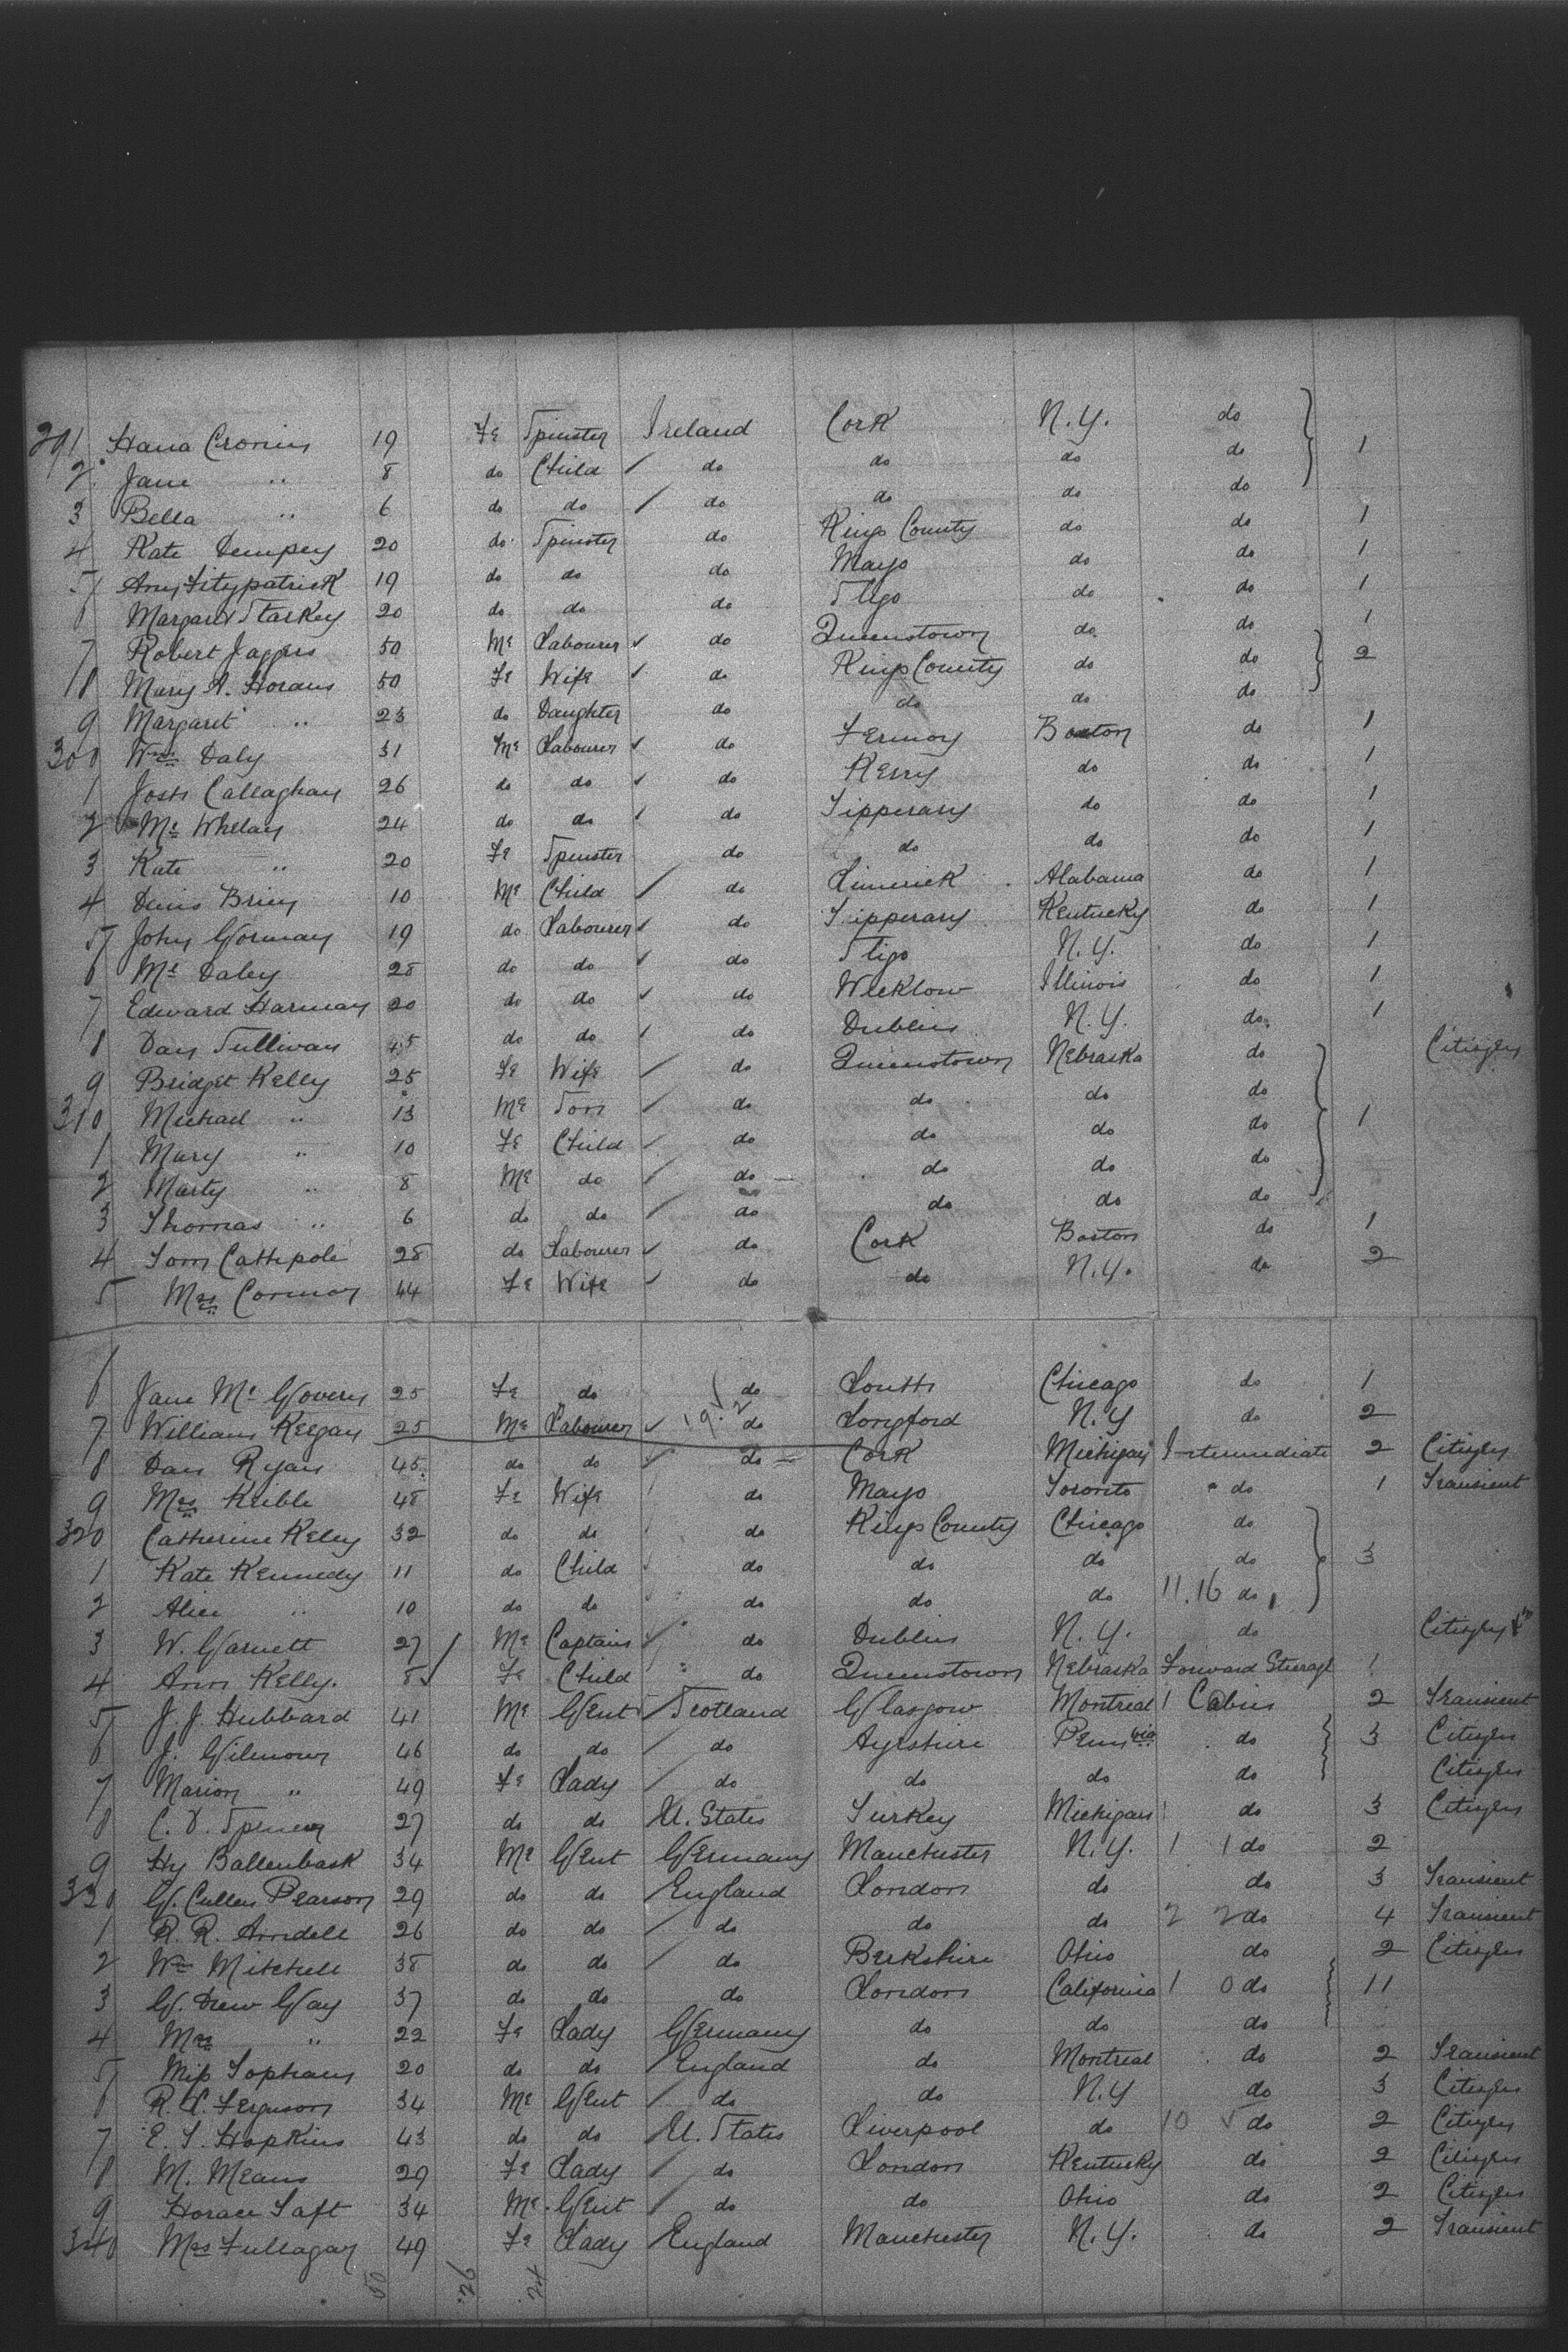 291 Hana Cronin 19 Fe Spinster Ireland Cork N.Y. do
2 Jane " 8 do Child do do do do 1
3 Bella " 6 do do do do do do
4 Kate Dempsey 20 do Spinster do Kings County do do 1
5 Any Fitzpatrick 19 do do do Mayo do do 1
6 Margaret Starkey 20 do do do Sligo do do 1
7 Robert Jaggers 50 Me Labourer do Queenstown do do 1
8 Mary A. Horans 50 Fe Wife do Kings County do do 2
9 Margaret " 23 do Daughter do do do do
300 Wm Daly 31 Me Labourer do Fermoy Boston do 1
1 Josh Callaghan 26 do do do Kerry do do 1
2 Ml Whelan 24 do do do Tipperary do do 1
3 Kate " 20 Fe Spinster do do do do 1
4 Denis Brien 10 Me Child do Limerick Alabama do 1
5 John Gorman 19 do Labourer do Tipperary Kentucky do 1
6 Ml Daley 28 do do do Sligo N.Y. do 1
7 Edward Harman 20 do do do Wicklow Illinois do 1
8 Dan Sullivan 45 do do do Dublin N.Y. do 1
9 Bridget Kelly 25 Fe Wife do Queenstown Nebraska do Citizen
310 Michael " 13 Me Son do do do do
1 Mary " 10 Fe Child do do do do 1
2 Marty " 8 Me do do do do do
3 Thomas " 6 do do do do do do
4 Tom Cattepole 28 do Labourer do Cork Boston do 1
5 Mrs Cormoy 44 Fe Wife do do N.Y. do 2
6 Jane Mc Govern 25 Fe do do Louth Chicago do 1
7 William Keegan 25 Me Labourer do Longford N.Y do 2
8 Dan Ryan 45 do do do Cork Michigan Intermediate 2 Citizen
9 Mrs Keible 48 Fe Wife do Mayo Toronto do 1 Transient
320 Catherine Keley 32 do do do Kings County Chicago do
1 Kate Kennedy 11 do Child do do do do 3
2 Alice " 10 do do do do do 11.16 do
3 W. Garnett 27 Me Captain do Dublin N.Y. do Citizen
4 Ann Kelly. 8 Fe Child do Queenstown Nebraska Forward Steerage 1
5 J. J. Hubbard 41 Me Gent Scotland Glasgow Montreal 1 Cabin 2 Transient
6 J. Gilmour 46 do do do Ayrshire Pennvia do 3 Citizen
7 Marion " 49 Fe Lady do do do do Citizen
8 C. D. Spencer 27 do do U. States Turkey Michigan do 3 Citizen
9 Hy Ballenback 34 Me Gent Germany Manchester N.Y. 1 1 do 2
330 G. Cullen Pearson 29 do do England London do do 3 Transient
1 R. R. Arndell 26 do do do do do 2 2 do 4 Transient
2 Wm Mitchell 38 do do do Berkshire Ohio do 2 Citizen
3 G. Drew Gay 37 do do do London California 1 0 do 11
4 Mrs " 22 Fe Lady Germany do do do
5 Miss Tophany 20 do do England do Montreal do 2 Transient
6 R. C. Ferguson 34 Me Gent do do N.Y do 3 Citizen
7 E. T. Hopkins 43 do do U. States Liverpool do 10 do 2 Citizen
8 M. Means 29 Fe Lady do London Kentucky do 2 Citizen
9 Horace Taft 34 Me Gent do do Ohio do 2 Citizen
340 Mrs Fullagar 49 Fe Lady England Manchester N.Y. do 2 Transient
50 26 24